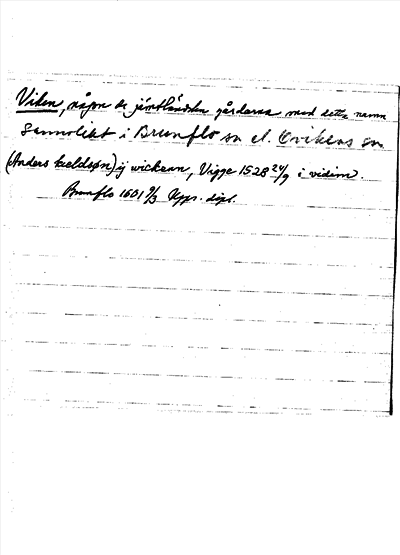 Viken, någon de jämtländska gårdarna med detta namn
sannolikt i Brunflo sn el. Ovikens sn.
(Anders keldsøn) ij wickenn, Vigge 1528 24/9 i vidim.
Brunflo 1601 9/3 Upps. dipl.